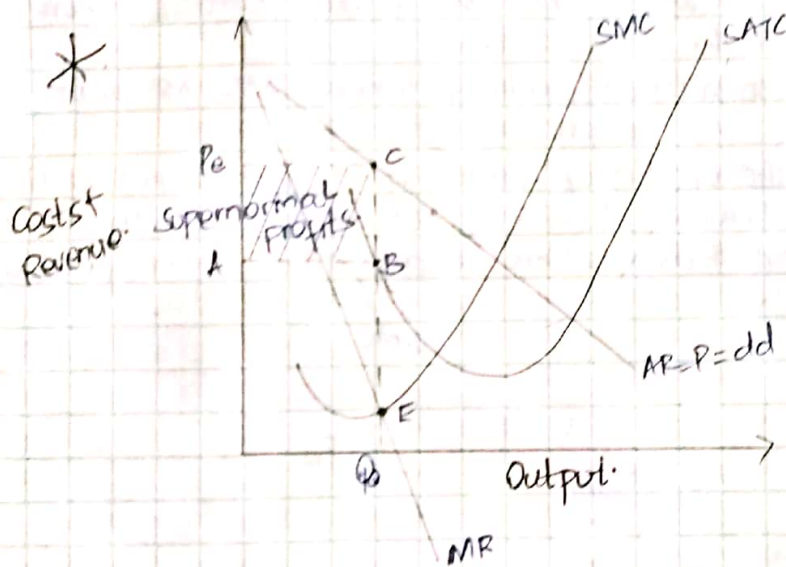 *
SMC
SATC
Pe
C
Costs +
Revenue.
Supernormal
profits.
A
B
AR=P=dd
E
Output.
MR